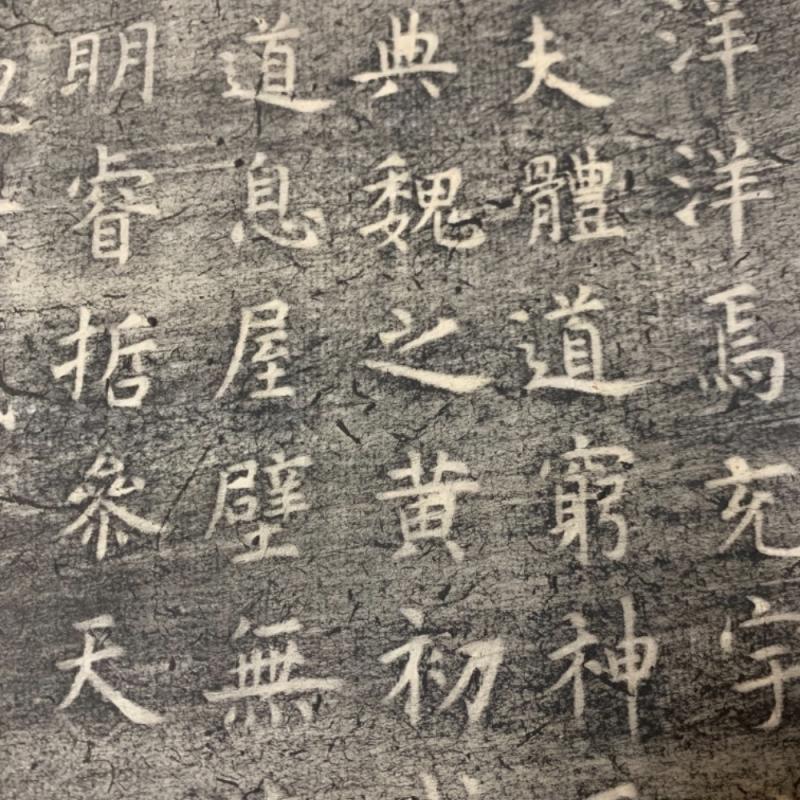 洋洋焉充宇
夫體道窮神
典魏之黄初
道息屋壁無
明睿哲參天